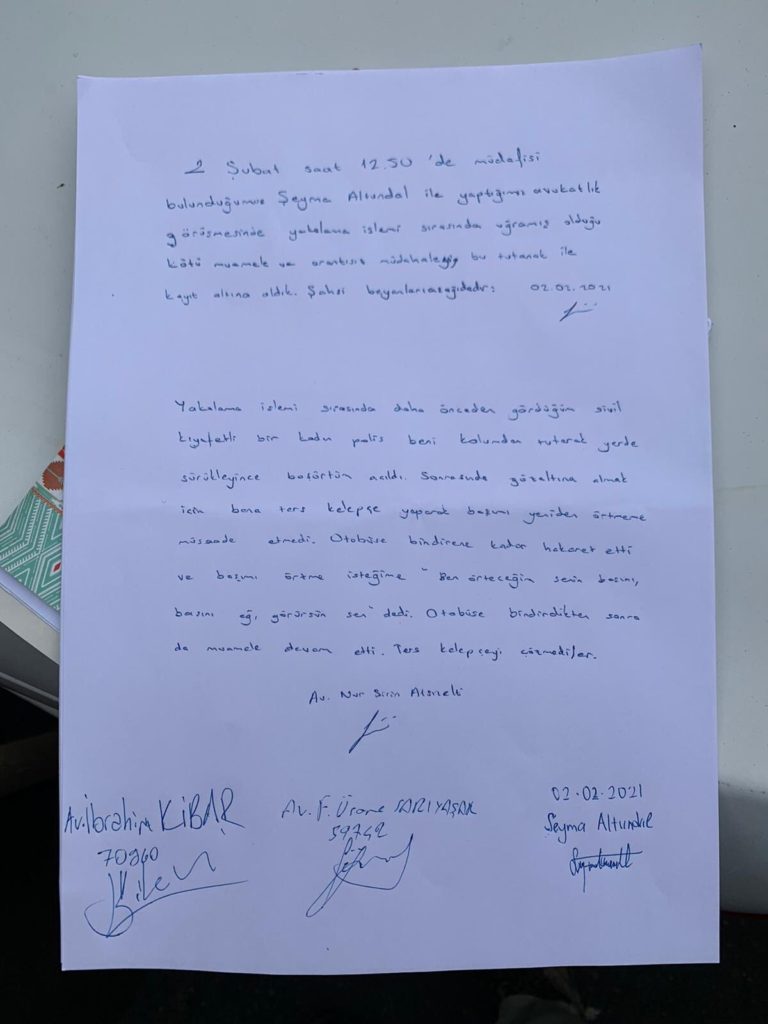 2 Şubat saat 12.50 'de müdafisi
bulunduğumuz Şeyma Altundal ile yaptığımız avukatlık
görüşmesinde yakalama işlemi sırasında uğramış olduğu
kötü muamele ve orantısız müdahaleyi bu tutanak ile
kayıt altına aldık. Şahsi beyanları aşağıdadır: 02.02.2021
Yakalama işlemi sırasında daha önceden gördüğüm sivil
kıyafetli bir kadın polis beni kolumdan tutarak yerde
sürükleyince başörtüm açıldı. Sonrasında gözaltına almak
için bana ters kelepçe yaparak başımı yeniden örtmeme
müsaade etmedi. Otobüse bindirene kadar hakaret etti
ve başımı örtme isteğime "Ben örteceğim senin başını,
başını eğ, görürsün sen" dedi. Otobüse bindirdikten sonra
da muamele devam etti. Ters kelepçeyi çözmediler.
Av. Nur Sirin
Av. İbrahim KİBAR
Av. F. SARIYAŞAR
59742
02.02.2021
Şeyma Altundal